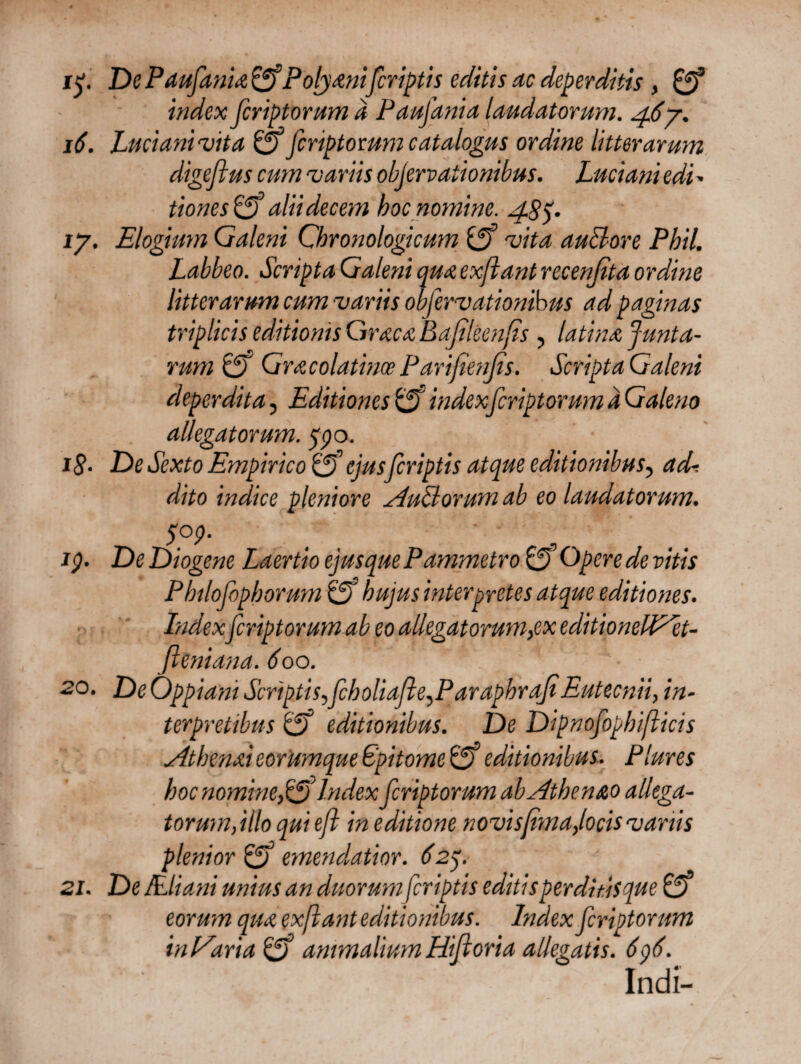 15. De Pausania & Polyæni scriptis editis ac deperditis, &
index scriptorum à Pausania laudatorum. 467.
16. Luciani vita & scriptorum catalogus ordine litterarum
digestus cum variis observationibus. Luciani edi-
tiones & alii decem hoc nomine. 485.
17. Elogium Galeni Chronologicum & vita auctore Phil.
Labbeo. Scripta Galeni quæ exstant recensita ordine
litterarum cum variis observationibus ad paginas
triplicis editionis Græcæ Basileensis, latinæ Junta-
rum & Græcolatinœ Parisiensis. Scripta Galeni
deperdita, Editiones & index scriptorum à Galeno
allegatorum. 590.
18. De Sexto Empirico & ejus scriptis atque editionibus, ad-
dito indice pleniore Auctorum ab eo laudatorum.
509.
19. De Diogene Laertio ejusque Pammetro & Opere de vitis
Philosophorum & hujus interpretes atque editiones.
Index scriptorum ab eo allegatorum, ex editione Wet-
steniana. 600.
20. De Oppiani Scriptis, scholiaste, Paraphrasi Eutecnii, in-
terpretibus & editionibus. De Dipnosophisticis
Athenæi eorumque Epitome & editionibus. Plures
hoc nomine, & Index scriptorum ab Athenæo allega-
torum, illo qui est in editione novissima, locis variis
plenior & emendatior. 625.
21. De Æliani unius an duorum scriptis editis perditisque &
eorum quæ exstant editionibus. Index scriptorum
in Varia & animalium Historia allegatis. 696.
Indi-